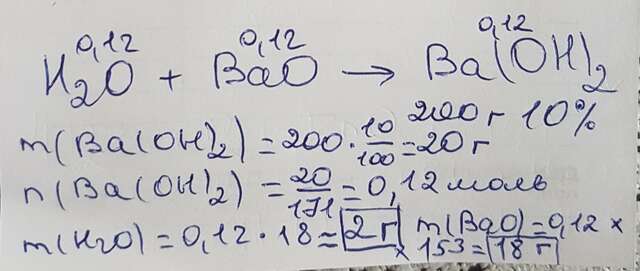 0,12 0,12 0,12
H₂O + BaO → Ba(OH)₂
200г 10%
m(Ba(OH)₂) = 200 · 10/100 = 20 г
n(Ba(OH)₂) = 20/171 = 0,12 моль
m(H₂O) = 0,12 · 18 = 2 г m(BaO) = 0,12 ×
× 153 = 18 г